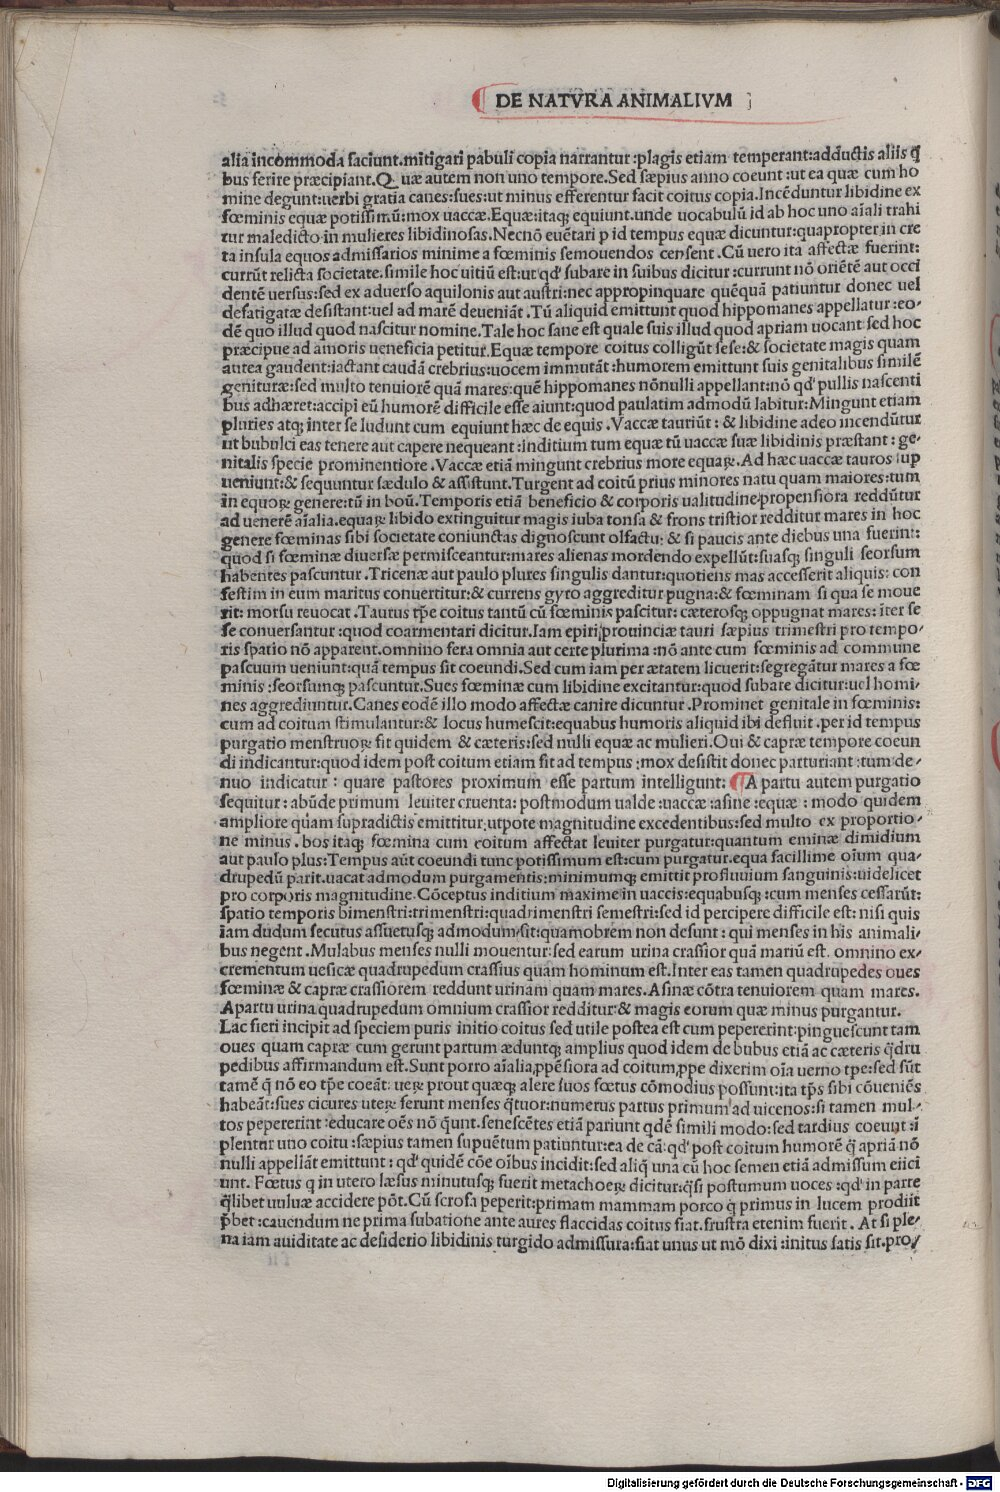 DE NATVRA ANIMALIVM
alia incommoda faciunt.mitigari pabuli copia narrantur :plagis etiam temperant:adductis aliis q̄
bus ferire præcipiant.Quæ autem non uno tempore.Sed sæpius anno coeunt :ut ea quæ cum ho
mine degunt:uerbi gratia canes:sues:ut minus efferentur facit coitus copia.Incēduntur libidine ex
fœminis equæ potissimū:mox uaccæ.Equæ:itaq; equiunt.unde uocabulū id ab hoc uno aīali trahi
tur maledicto in mulieres libidinosas.Necnō euētari p id tempus equæ dicuntur:quapropter in cre
ta insula equos admissarios minime a fœminis semouendos censent.Cū uero ita affectæ fuerint:
currūt relicta societate.simile hoc uitiū est:ut qd' subare in suibus dicitur :currunt nō oriētē aut occi
dentē uersus:sed ex aduerso aquilonis aut austri:nec appropinquare quēquā patiuntur donec uel
defatigatæ desistant:uel ad marē deueniāt.Tū aliquid emittunt quod hippomanes appellatur :eo/
dē quo illud quod nascitur nomine.Tale hoc sane est quale suis illud quod apriam uocant sed hoc
præcipue ad amoris ueneficia petitur.Equæ tempore coitus colligūt sese:& societate magis quam
antea gaudent:iactant caudā crebrius:uocem immutāt :humorem emittunt suis genitalibus similē
genituræ:sed multo tenuiorē quā mares:quē hippomanes nōnulli appellant:nō qd' pullis nascenti
bus adhæret:accipi eū humorē difficile esse aiunt:quod paulatim admodū labitur:Mingunt etiam
pluries atq; inter se ludunt cum equiunt hæc de equis.Vaccæ tauriūt :& libidine adeo incendūtur
ut bubulci eas tenere aut capere nequeant :inditium tum equæ tū uaccæ suæ libidinis præstant : ge/
nitalis specie prominentiore.Vaccæ etiā mingunt crebrius more equaꝝ.Ad hæc uaccæ tauros sup
ueniunt:& sequuntur sædulo & assistunt.Turgent ad coitū prius minores natu quam maiores:tum
in equoꝝ genere:tū in boū.Temporis etiā beneficio & corporis ualitudine propensiora reddūtur
ad uenerē aīalia.equaꝝ libido extinguitur magis iuba tonsa & frons tristior redditur mares in hoc
genere fœminas sibi societate coniunctas dignoscunt olfactu: & si paucis ante diebus una fuerint:
quod si fœminæ diuersæ permisceantur:mares alienas mordendo expellūt:suasq; singuli seorsum
habentes pascuntur.Tricenæ aut paulo plures singulis dantur:quotiens mas accesserit aliquis: con
festim in eum maritus conuertitur:& currens gyro aggreditur pugna:& fœminam si qua se moue
rit: morsu reuocat.Taurus tp̄e coitus tantū cū fœminis pascitur: cæterosq; oppugnat mares: īter se
se conuersantur :quod coarmentari dicitur.Iam epiri prouinciæ tauri sæpius trimestri pro tempo/
ris spatio nō apparent.omnino fera omnia aut certe plurima :nō ante cum fœminis ad commune
pascuum ueniunt:quā tempus sit coeundi.Sed cum iam per ætatem licuerit:segregātur mares a fœ
minis :seorsumq; pascuntur.Sues fœminæ cum libidine excitantur:quod subare dicitur:uel homi/
nes aggrediuntur.Canes eodē illo modo affectæ canire dicuntur.Prominet genitale in fœminis:
cum ad coitum stimulantur:& locus humescit:equabus humoris aliquid ibi defluit.per id tempus
purgatio menstruoꝝ fit quidem & cæteris:sed nulli equæ ac mulieri.Oui & capræ tempore coeun
di indicantur:quod idem post coitum etiam sit ad tempus :mox desistit donec parturiant :tum de/
nuo indicatur : quare pastores proximum esse partum intelligunt: A partu autem purgatio
sequitur : abūde primum leuiter cruenta: postmodum ualde :uaccæ :asine :equæ : modo quidem
ampliore quam supradictis emittitur.utpote magnitudine excedentibus:sed multo ex proportio/
ne minus.bos itaq; fœmina cum coitum affectat leuiter purgatur:quantum eminæ dimidium
aut paulo plus:Tempus aūt coeundi tunc potissimum est:cum purgatur.equa facillime oīum qua/
drupedū parit.uacat admodum purgamentis:minimumq; emittit profluuium sanguinis:uidelicet
pro corporis magnitudine.Cōceptus inditium maxime in uaccis:equabusq; :cum menses cessarūt:
spatio temporis bimenstri:trimenstri:quadrimenstri semestri:sed id percipere difficile est: nisi quis
iam dudum secutus assuetusq; admodum sit:quamobrem non desunt : qui menses in his animali/
bus negent.Mulabus menses nulli mouentur:sed earum urina crassior quā mariū est. omnino ex/
crementum uesicæ quadrupedum crassius quam hominum est.Inter eas tamen quadrupedes oues
fœminæ & capræ crassiorem reddunt urinam quam mares.Asinæ cōtra tenuiorem quam mares.
A partu urina quadrupedum omnium crassior redditur:& magis eorum quæ minus purgantur.
Lac fieri incipit ad speciem puris initio coitus sed utile postea est cum pepererint:pinguescunt tam
oues quam capræ cum gerunt partum æduntq; amplius quod idem de bubus etiā ac cæteris q̄dru
pedibus affirmandum est.Sunt porro aīalia ꝓpēsiora ad coitum ꝓpe dixerim oīa uerno tpe:sed sūt
tamē q̄ nō eo tp̄e coeāt: ueꝝ prout quæq; alere suos fœtus cōmodius possunt:ita tp̄s sibi cōueniēs
habeāt:sues cicures uteꝝ ferunt menses q̄tuor:numerus partus primum ad uicenos:si tamen mul/
tos pepererint :educare oēs nō q̄unt.senescētes etiā pariunt qdē simili modo:sed tardius coeunt :ī
plentur uno coitu :sæpius tamen supuētum patiuntur:ea de cā:qd' post coitum humorē q̄ apriā nō
nulli appellāt emittunt : qd' quidē cōe oībus incidit:sed aliq̄ una cū hoc semen etiā admissum eiici
unt. Fœtus q in utero læsus minutusq; fuerit metachoeꝝ dicitur:q̄si postumum uoces :qd' in parte
q̄libet uuluæ accidere pōt.Cū scrofa peperit:primam mammam porco q̄ primus in lucem prodiit
p̄bet :cauendum ne prima subatione ante aures flaccidas coitus fiat.frustra etenim fuerit. At si ple/
na iam auiditate ac desiderio libidinis turgido admissura:fiat unus ut mō dixi :initus satis sit.pro/
Digitalisierung gefördert durch die Deutsche Forschungsgemeinschaft - DFG